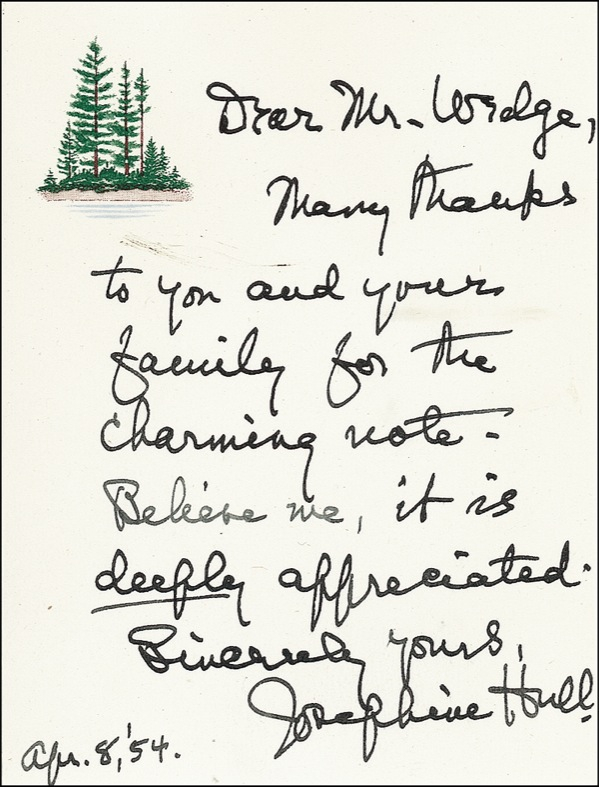 Dear Mr. Wedge,
Many thanks
to you and yours
family for the
charming note -
Believe me, it is
deeply appreciated.
Sincerely yours,
Josephine Hull.
Apr. 8, '54.